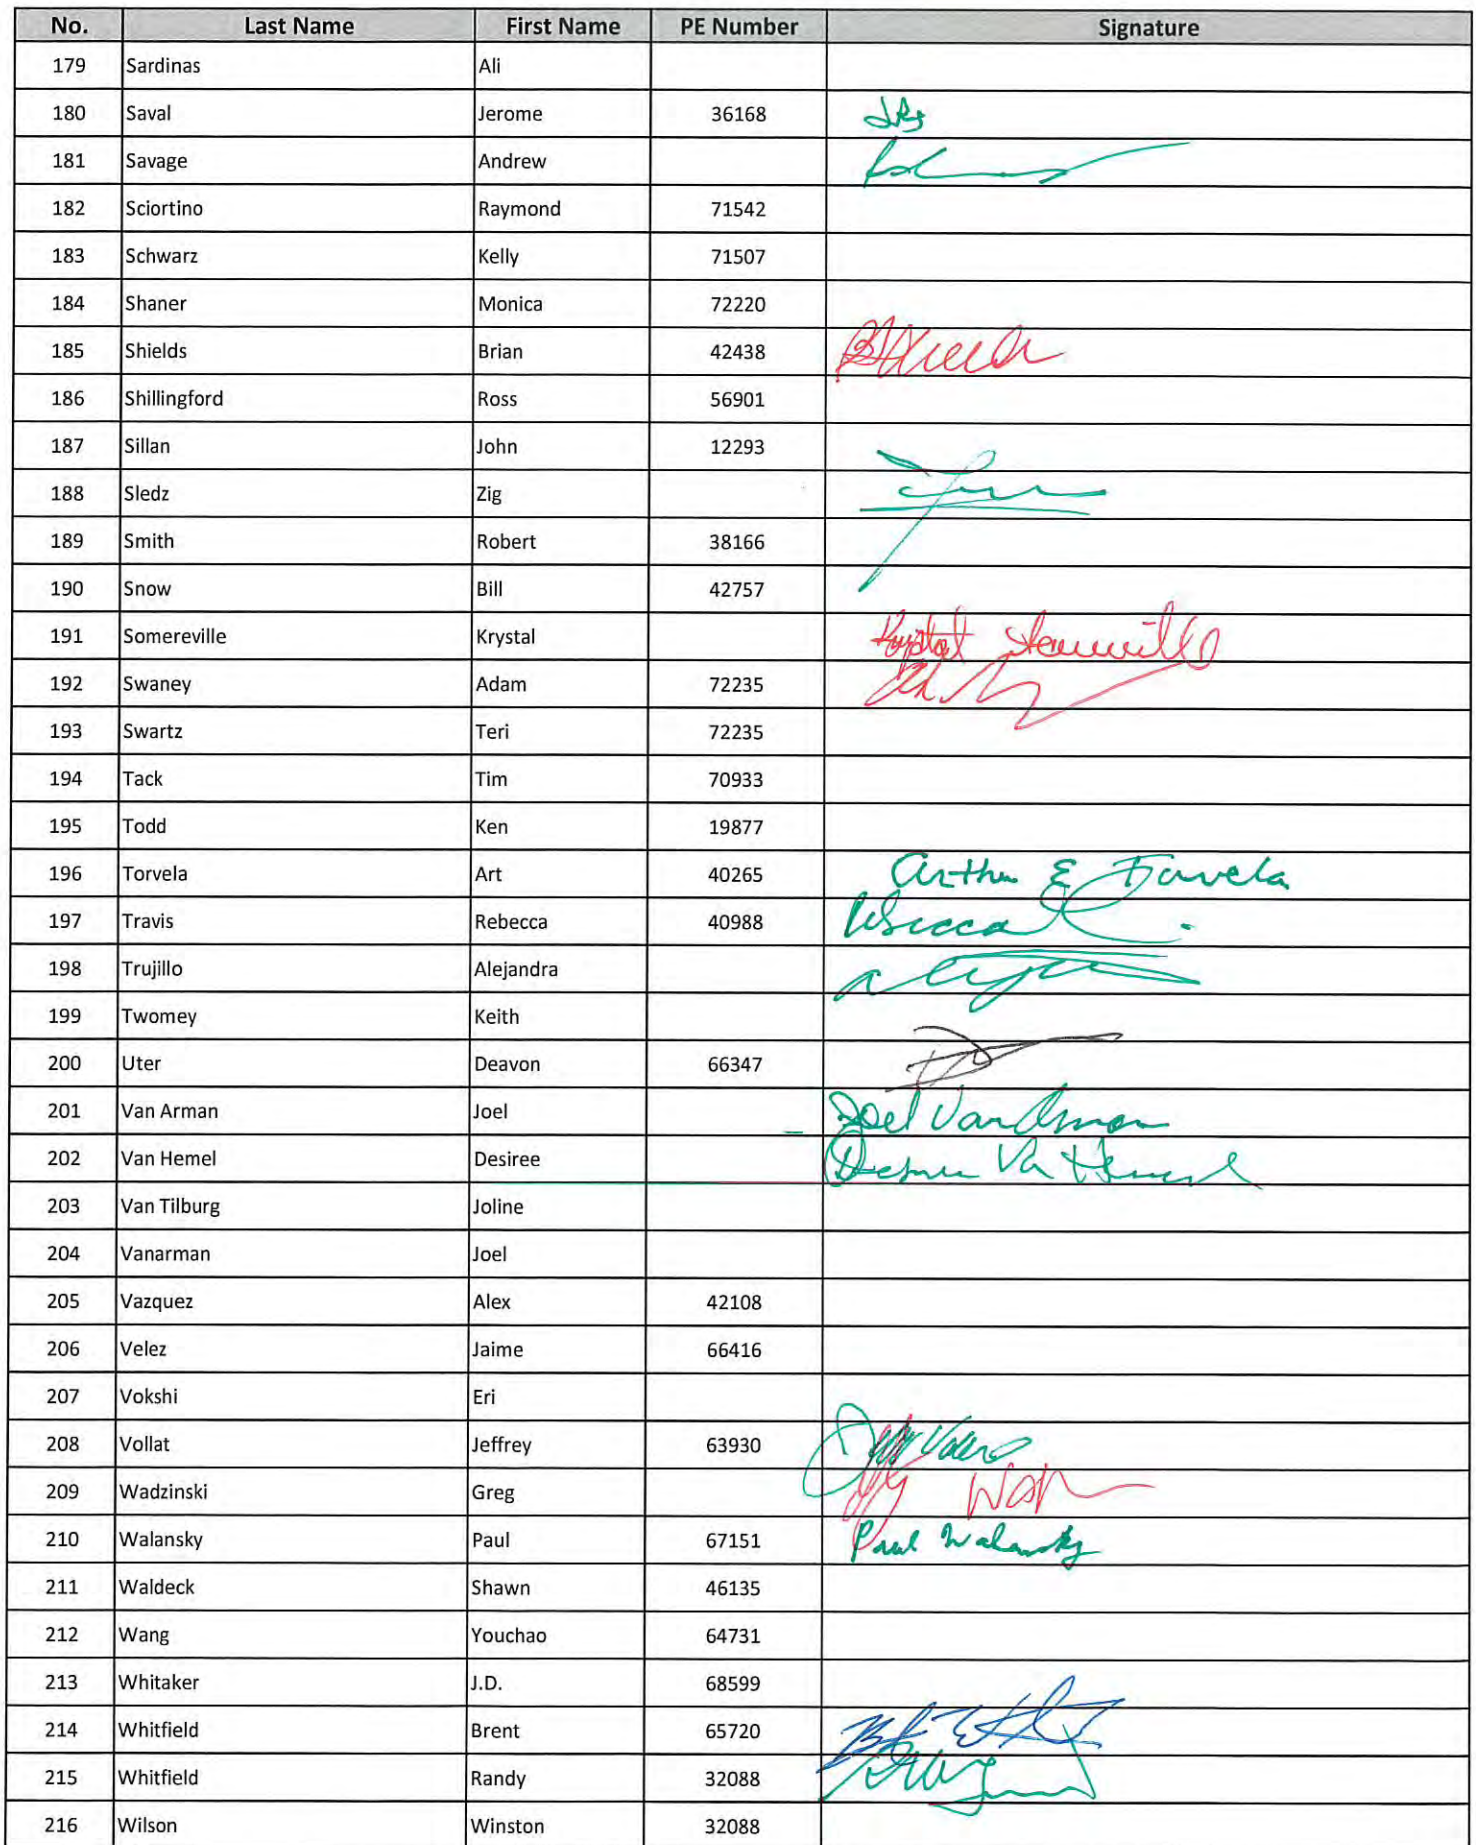 No. Last Name First Name PE Number Signature
179 Sardinas Ali
180 Saval Jerome 36168
181 Savage Andrew
182 Sciortino Raymond 71542
183 Schwarz Kelly 71507
184 Shaner Monica 72220
185 Shields Brian 42438
186 Shillingford Ross 56901
187 Sillan John 12293
188 Sledz Zig
189 Smith Robert 38166
190 Snow Bill 42757
191 Somereville Krystal Krystal
192 Swaney Adam 72235
193 Swartz Teri 72235
194 Tack Tim 70933
195 Todd Ken 19877
196 Torvela Art 40265 Arthur E Torvela
197 Travis Rebecca 40988 Rebecca
198 Trujillo Alejandra
199 Twomey Keith
200 Uter Deavon 66347
201 Van Arman Joel Joel VanArman
202 Van Hemel Desiree Desiree Van Hemel
203 Van Tilburg Joline
204 Vanarman Joel
205 Vazquez Alex 42108
206 Velez Jaime 66416
207 Vokshi Eri
208 Vollat Jeffrey 63930
209 Wadzinski Greg
210 Walansky Paul 67151 Paul Walansky
211 Waldeck Shawn 46135
212 Wang Youchao 64731
213 Whitaker J.D. 68599
214 Whitfield Brent 65720
215 Whitfield Randy 32088
216 Wilson Winston 32088